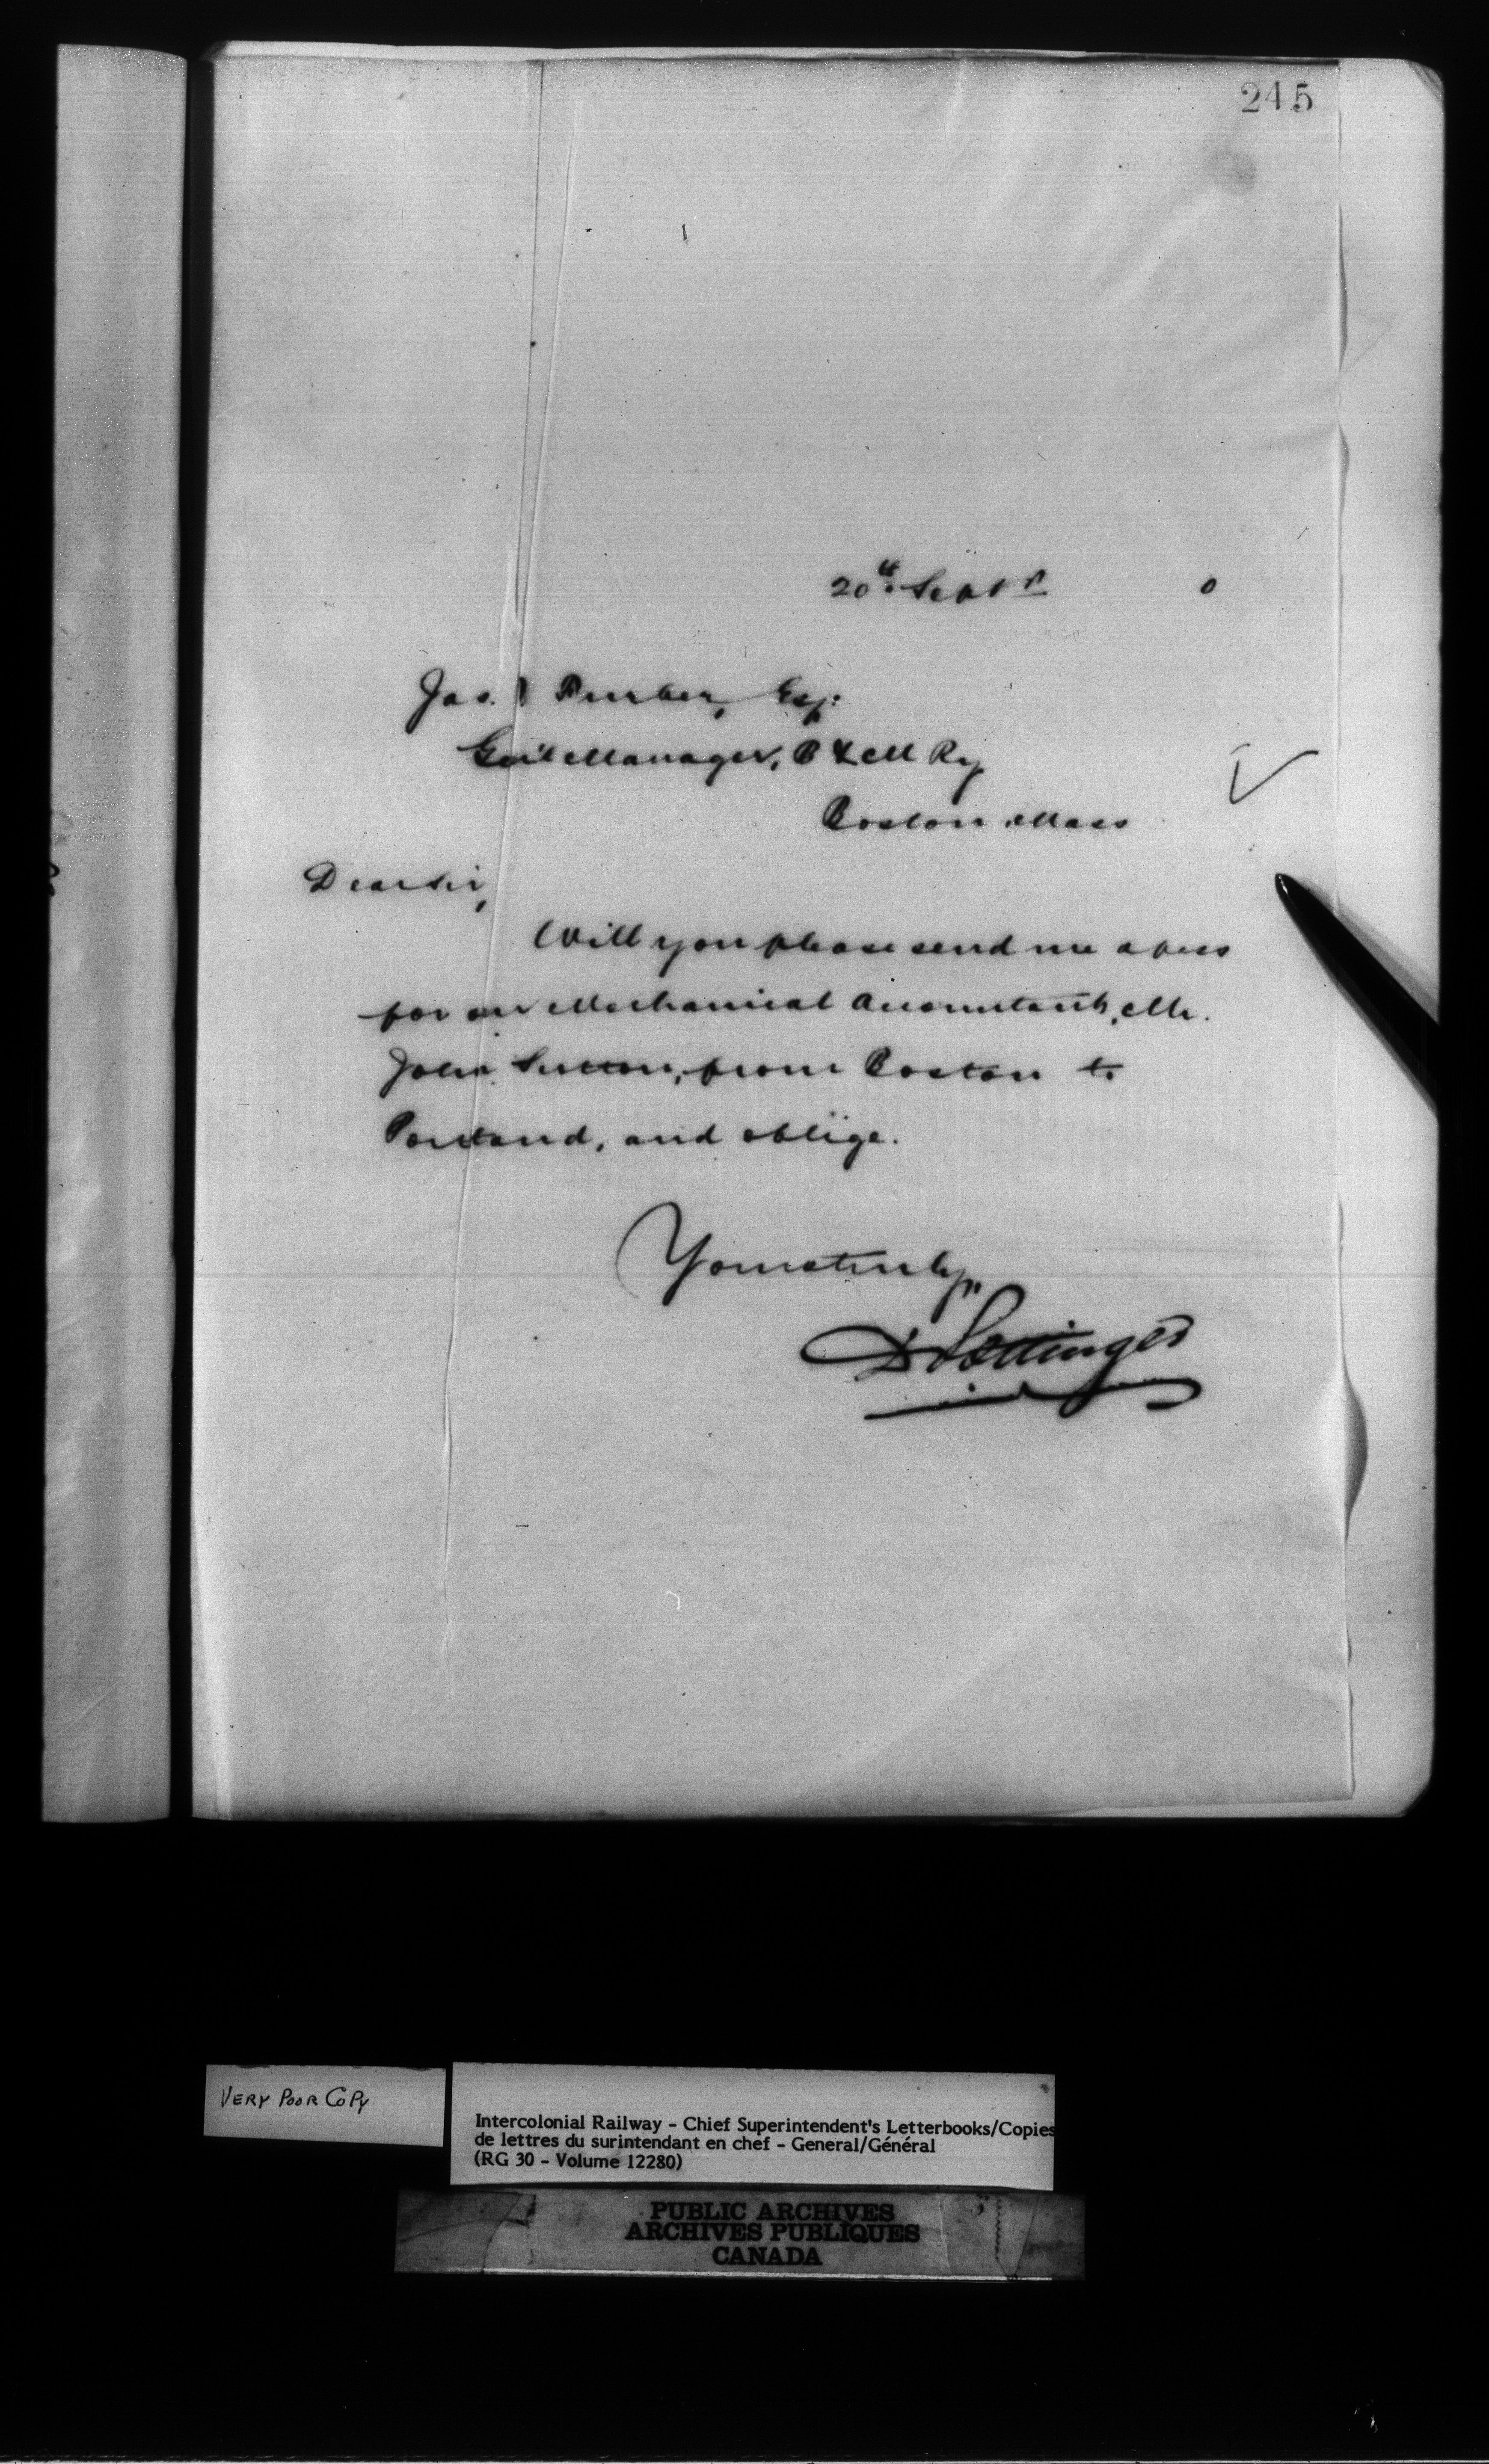 245
20th Septr 0
Jas. T Furber, Esq:
Gen'l Manager, B & M Ry
Boston Mass
Dear Sir,
Will you please send me a pass
for our Mechanical Accountant, Mr.
John Sutton, from Boston to
Portland, and oblige.
Yours truly,
D Pottinger
VERY POOR COPY
Intercolonial Railway - Chief Superintendent's Letterbooks/Copies
de lettres du surintendant en chef - General/Général
(RG 30 - Volume 12280)
PUBLIC ARCHIVES
ARCHIVES PUBLIQUES
CANADA